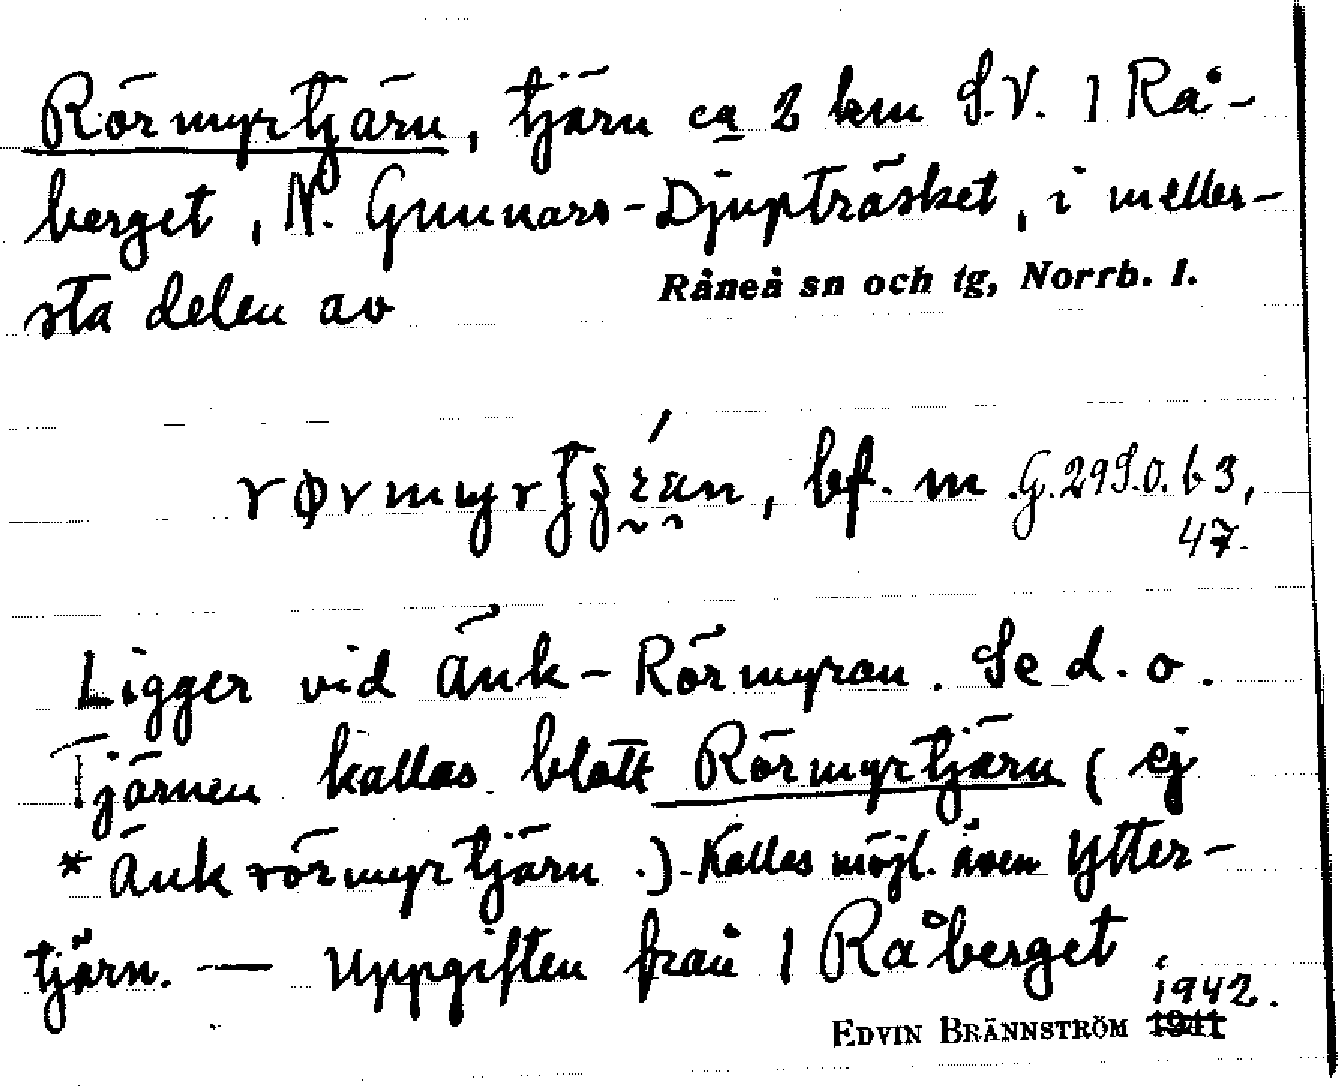 Rörmyrtjärn, tjärn ca 2 km S.V. 1 Rå-
berget, N. Gunnars-Djupträsket, i meller-
sta delen av Råneå sn och tg, Norrb. l.
bf. m G. 29 S.O. b 3,
47.
Ligger vid Änk-Rörmyran. Se d. o.
Tjärnen kallas blott Rörmyrtjärn (ej
*Änkrörmyrtjärn.) Kallas möjl. även Ytter-
tjärn. — Uppgiften från 1 Råberget
1942.
EDVIN BRÄNNSTRÖM 1941